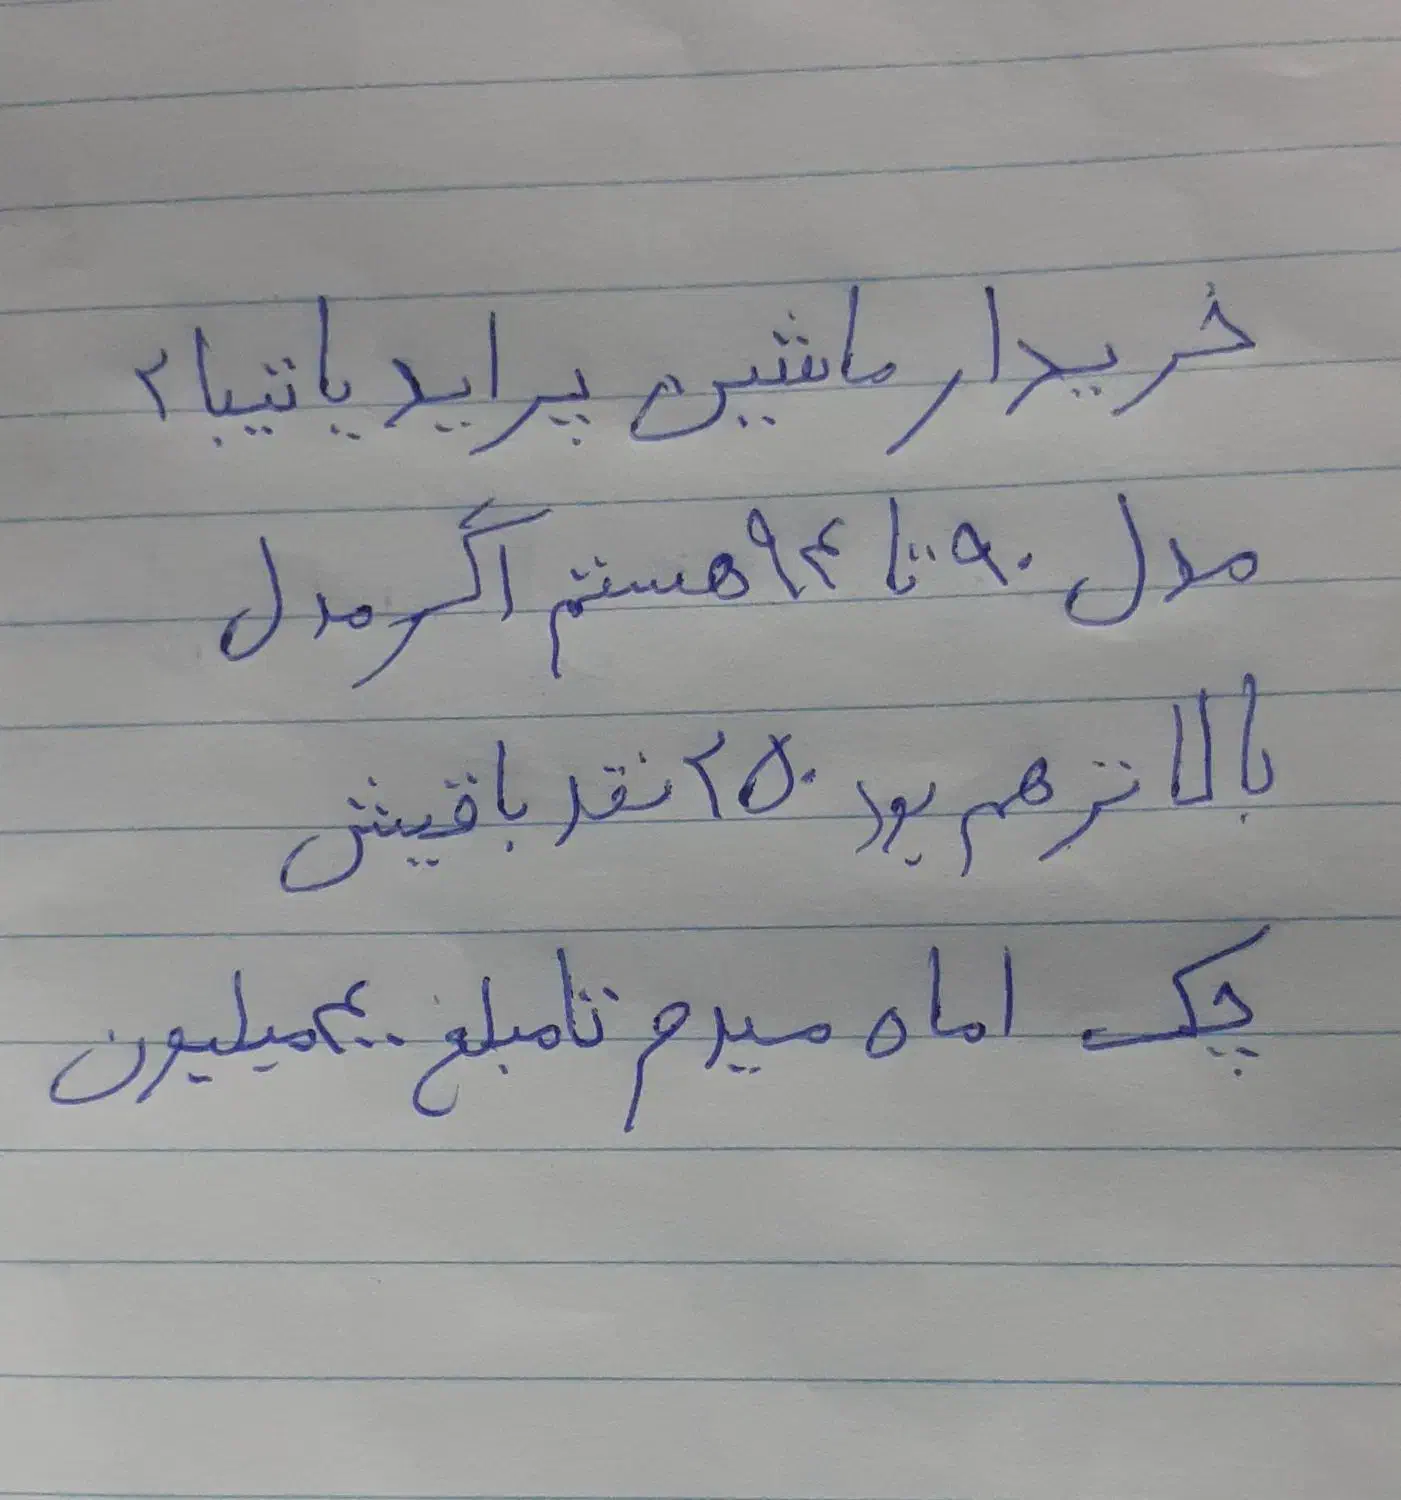 خریدار ماشین پراید یا تیبا ۲
مدل ۹۰ تا ۹۴ هستم اگر مدل
بالاتر هم بود ۲۵۰ نقد باقیش
چک ۱ ماه میدم تا مبلغ ۴۰۰ میلیون